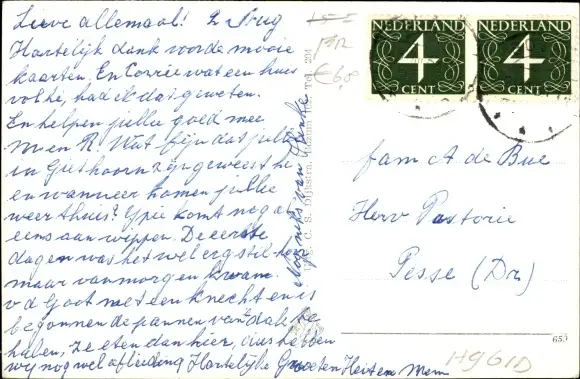 Lieve allemaal! 2 Aug
Hartelijk dank voor de mooie
kaarten. En Corrie wat een huis
vol hé, had ik dat geweten.
En helpen jullie goed mee
M en R. Wat fijn dat jullie
in Giethoorn zijn geweest hé
en wanneer komen jullie
weer thuis? Ypie komt nog al
eens aanwippen. De eerste
dagen was het wel erg stil hier
maar van morgen kwam
v d Goot met een knecht en is
begonnen de pannen van 't dak te
halen, ze eten dan hier, dus hebben
wij nog wel afleiding Hartelijke Groeten Heit en Mem
Nog niets van Rinke
C. S. Dijkstra, Tel. 204
NEDERLAND
4
CENT
NEDERLAND
4
CENT
fam A de Bue
Herv Pastorie
Pesse (Dr)
653
H961D